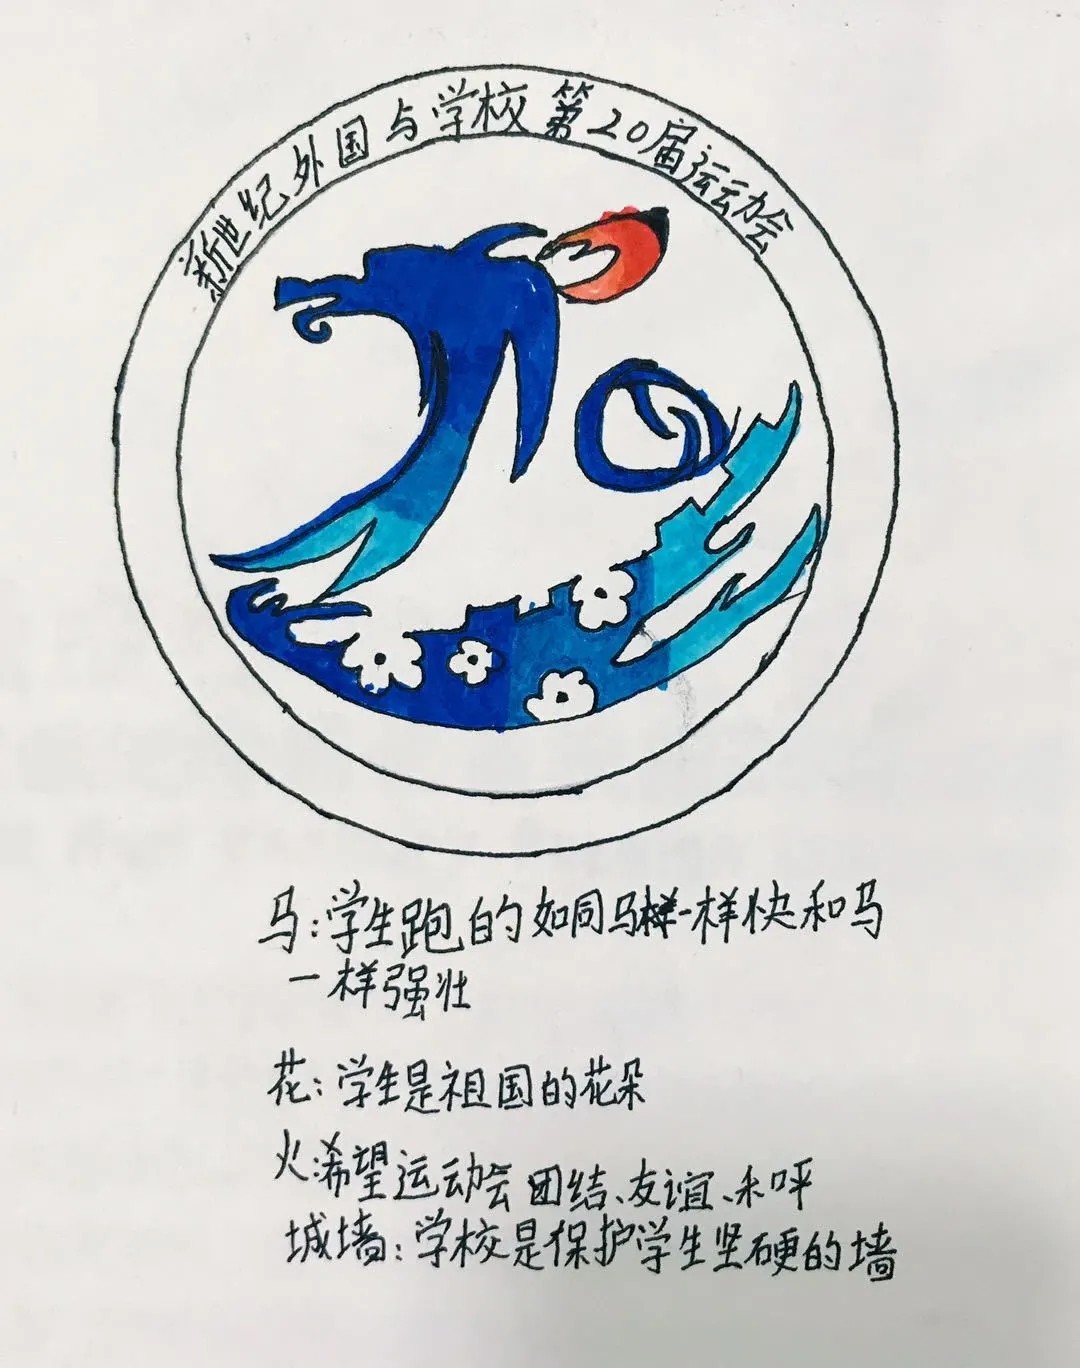 新世纪外国与学校第20届运动会
马:学生跑的如同马一样快和马
一样强壮
花:学生是祖国的花朵
火:希望运动会团结、友谊、和呯
城墙:学校是保护学生坚硬的墙